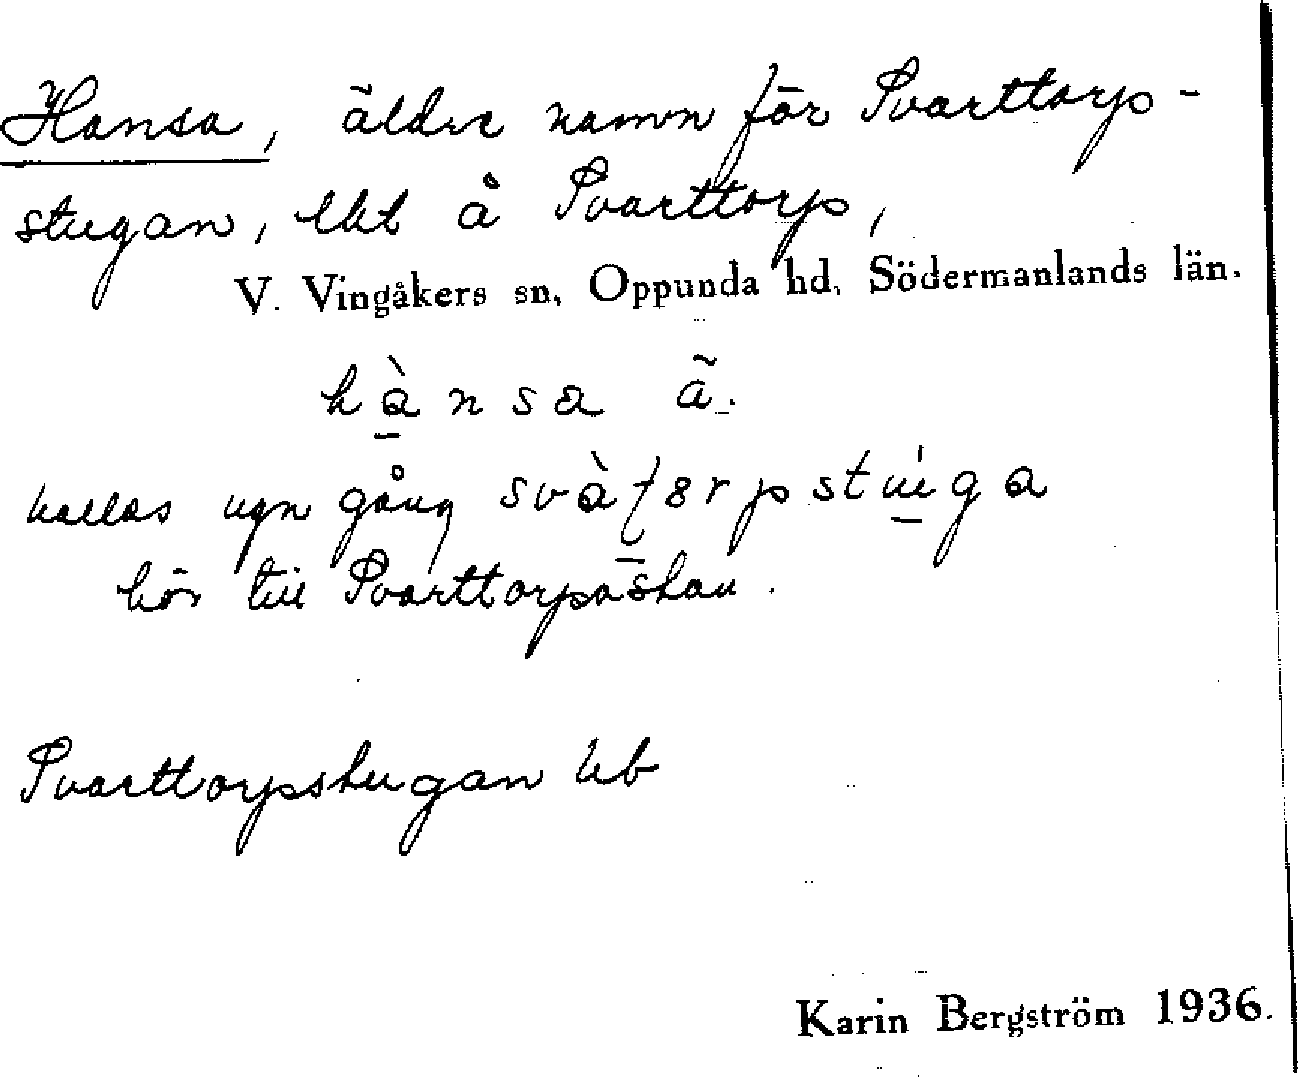 Hansa, äldre namn för Svarttorp-
stugan, lht å Svarttorp,
V. Vingåkers sn, Oppunda hd, Södermanlands län.
hànsa ä̃.
kallas ngn gång
hör till Svarttorpaskau.
Svarttorpstugan kb
Karin Bergström 1936.